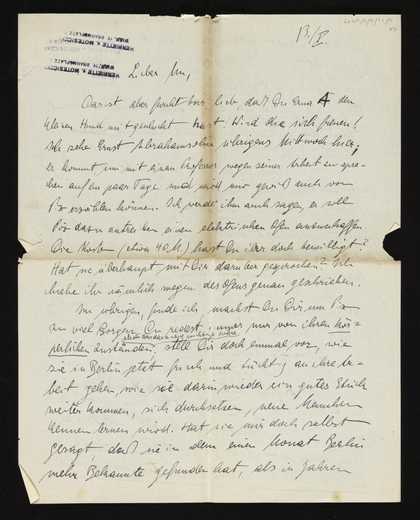 HENRIETTE V. MOTESICZKY
WIEN, IV. BRAHMSPLATZ
13./X.
Lieber
Das ist aber furchtbar lieb, daß Du den
kleinen Hund mitgebracht hast. Wird sich freuen!
Ich sehe Ernst Abrahamsohn übrigens Mittwoch hier,
er kommt um mit einem Professor wegen seiner Arbeit zu spre-
chen auf ein paar Tage und wird mir gewiß auch von
erzählen können. Ich werde ihm auch sagen, er soll
das andere einen elektrischen Ofen anschaffen.
Die Kosten (etwa 40 M.) hast Du ihr doch bewilligt?
Hat sie überhaupt mit Dir darüber gesprochen? Ich
habe ihr nämlich wegen des Ofens genau geschrieben.
Im übrigen, finde ich, machst Du Dir um
zu viel Sorgen. Du redest immer nur von ihren kör-
perlichen Zuständen, stell Dir doch einmal vor, wie
sie in Berlin, statt frisch und tüchtig an ihre Ar-
beit gehen, wie sie darin wieder ein gutes Stück
weiter kommen, sich durchsetzen, neue Menschen
kennen lernen wird. Hat sie mir doch selbst
gesagt, daß sie in dem einen Monat Berlin
mehr Bekannte gefunden hat, als in Jahren